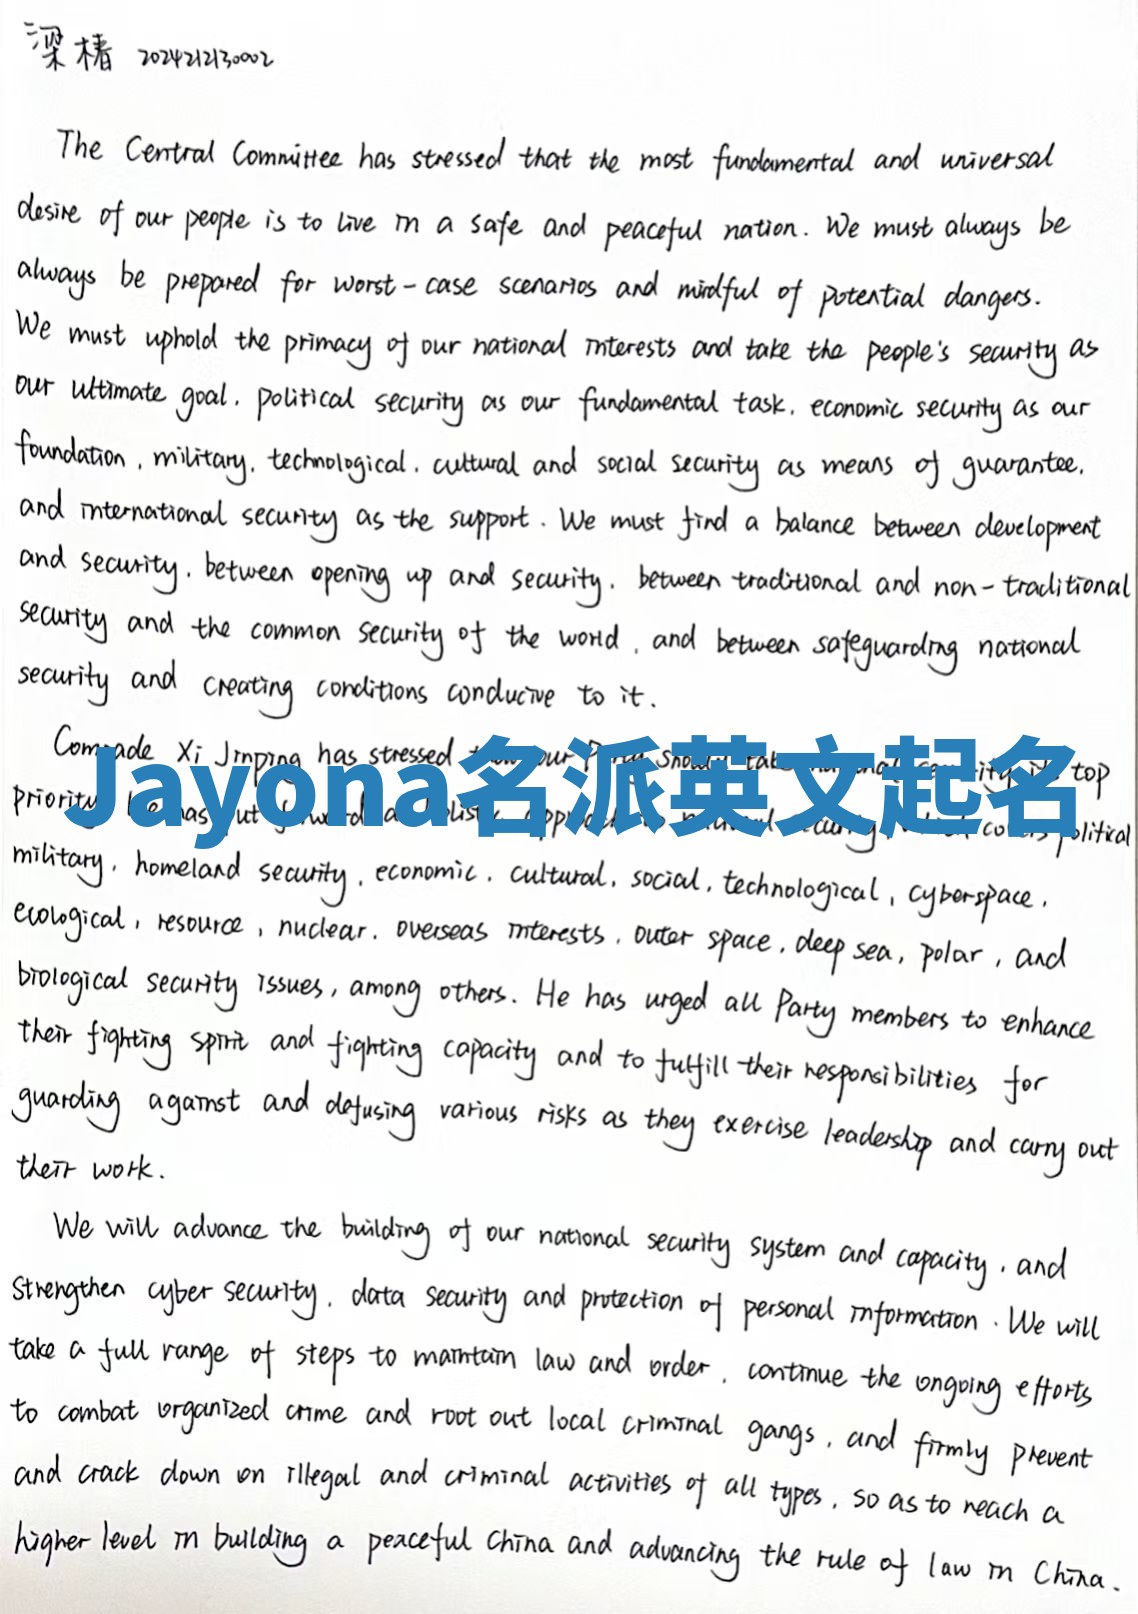 梁椿 2024212130002
The Central Committee has stressed that the most fundamental and universal
desire of our people is to live in a safe and peaceful nation. We must always be
always be prepared for worst-case scenarios and mindful of potential dangers.
We must uphold the primacy of our national interests and take the people's security as
our ultimate goal, political security as our fundamental task, economic security as our
foundation, military, technological, cultural and social security as means of guarantee,
and international security as the support. We must find a balance between development
and security, between opening up and security, between traditional and non-traditional
security and the common security of the world, and between safeguarding national
security and creating conditions conducive to it.
Comrade Xi Jinping has stressed our top
Jayona名派英文起名
priority has political
military, homeland security, economic, cultural, social, technological, cyberspace,
ecological, resource, nuclear, overseas interests, outer space, deep sea, polar, and
biological security issues, among others. He has urged all Party members to enhance
their fighting spirit and fighting capacity and to fulfill their responsibilities for
guarding against and defusing various risks as they exercise leadership and carry out
their work.
We will advance the building of our national security system and capacity, and
strengthen cyber security, data security and protection of personal information. We will
take a full range of steps to maintain law and order, continue the ongoing efforts
to combat organized crime and root out local criminal gangs, and firmly prevent
and crack down on illegal and criminal activities of all types, so as to reach a
higher level in building a peaceful China and advancing the rule of law in China.